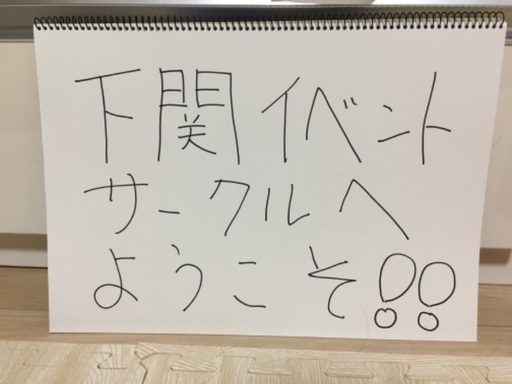 下関イベント
サークルへ
ようこそ!!